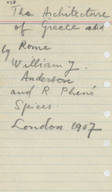 The Architecture
of Greece and
Rome
by William J.
Anderson
and R Phené
Spiers.
London 1907